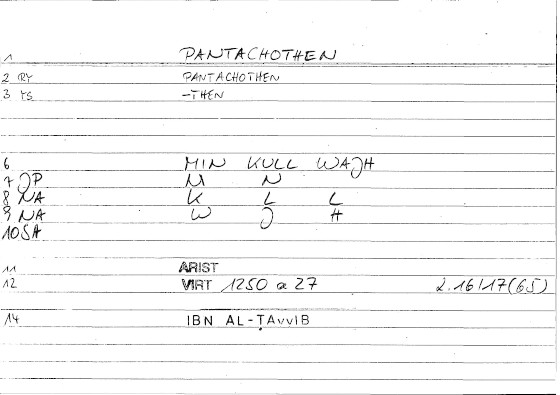 1 PANTACHOTHEN
2 RY PANTACHOTHEN
3 YS -THEN
6 MIN KULL WAJH
7 JP M N
8 NA K L L
9 NA W J H
10 SA
11 ARIST
12 VIRT 1250 a 27 2.16/17(65)
14 IBN AL-ṬAYYIB